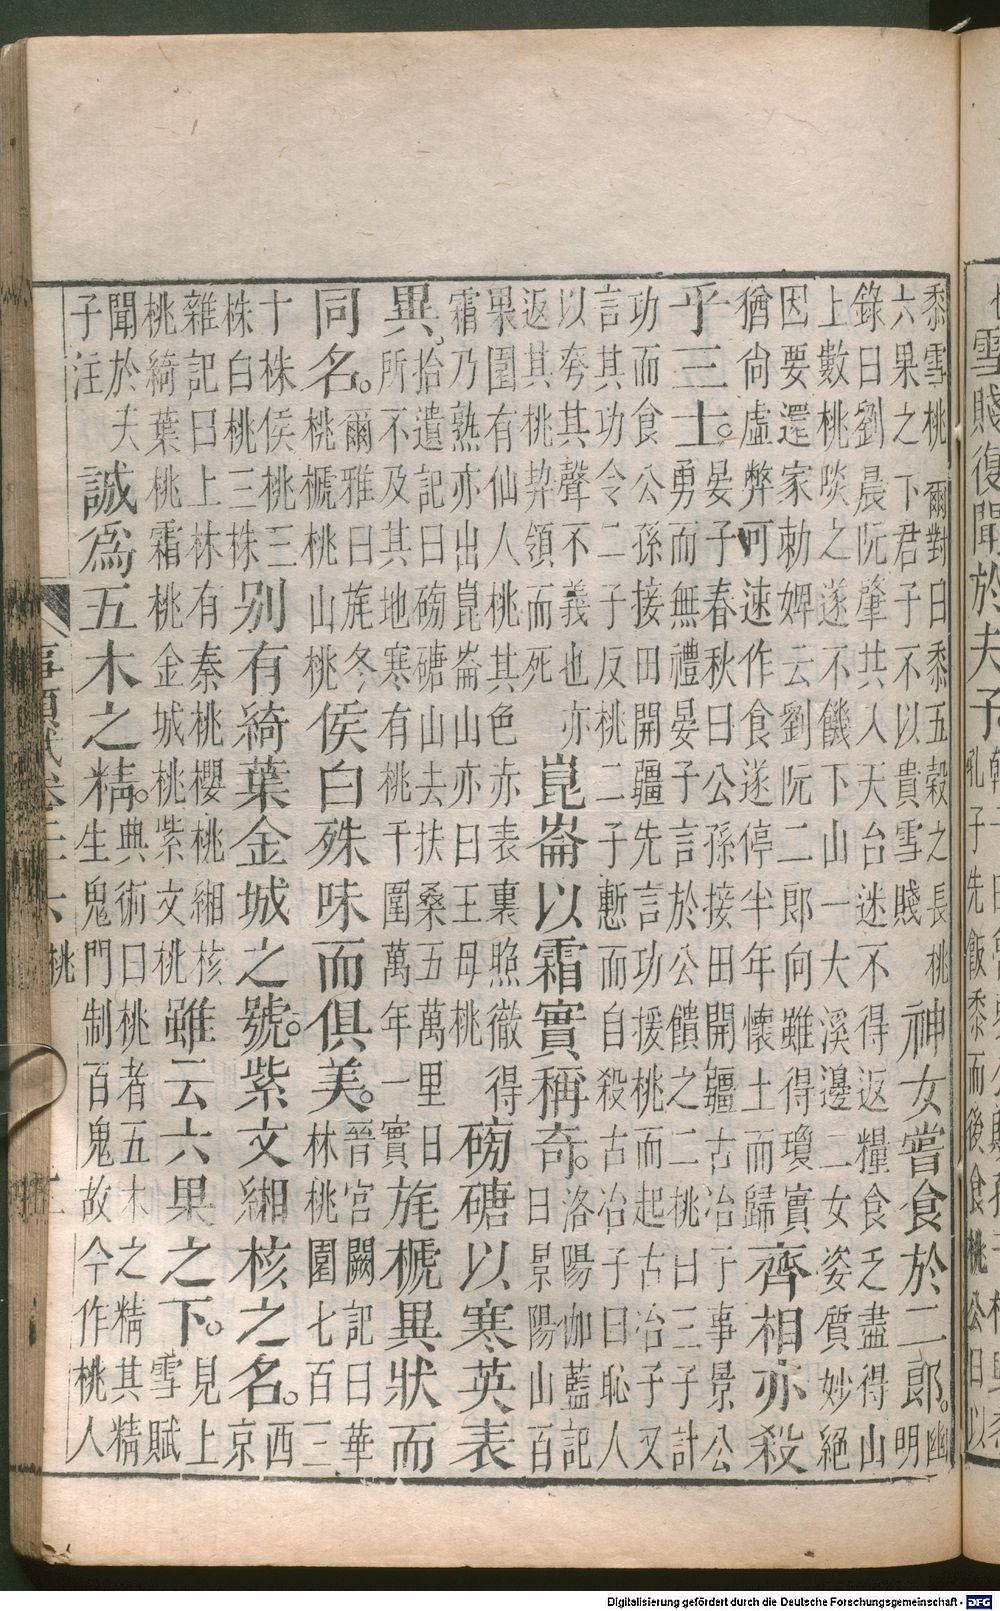 雪賤復聞於夫子
黍雪桃爾對曰黍五穀之長桃
六果之下君子不以貴雪賤
神女嘗食於二郎。
幽
明
錄曰劉晨阮肇共入天台迷不得返糧食乏盡得山
上數桃啖之遂不饑下山一大溪邊二女姿質妙絕
因要還家勅婢云劉阮二郎向雖得瓊實
猶尚虛弊可速作食遂停半年懷土而歸
齊相亦殺
乎三士。
晏子春秋曰公孫接田開疆古冶于事景公
勇而無禮晏子言於公饋之二桃曰三子計
功而食公孫接田開疆先言功援桃而起古冶子又
言其功令二子反桃二子慙而自殺古冶子曰恥人
以夸其聲不義也亦
返其桃契領而死
崑崙以霜實稱奇。
洛陽伽藍記
曰景陽山百
果園有仙人桃其色赤表裏照徹得
霜乃熟亦出崑崙山亦曰王母桃
磅磄以寒英表
異。
拾遺記曰磅磄山去扶桑五萬里日
所不及其地寒有桃千圍萬年一實
旄榹異狀而
同名。
爾雅曰旄冬
桃榹桃山桃
侯白殊味而俱美。
晉宮闕記曰華
林桃園七百三
十株侯桃三
株白桃三株
别有綺葉金城之號。紫文緗核之名。
西
京
雜記曰上林有秦桃櫻桃緗核
桃綺葉桃霜桃金城桃紫文桃
雖云六果之下。
見上
雪賦
聞於夫
子注
誠爲五木之精。
典術曰桃者五木之精其精
生鬼門制百鬼故今作桃人
桃
Digitalisierung gefördert durch die Deutsche Forschungsgemeinschaft - DFG